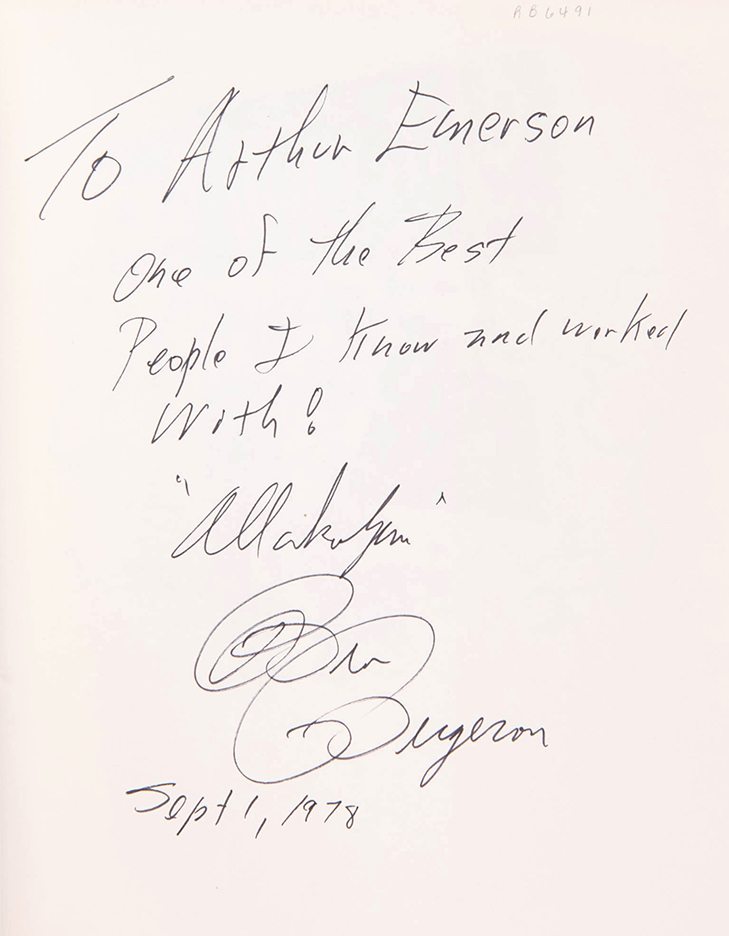 RB6491
To Arthur Emerson
One of the Best
People I know and worked
With!
Bergeron
Sept 1, 1978